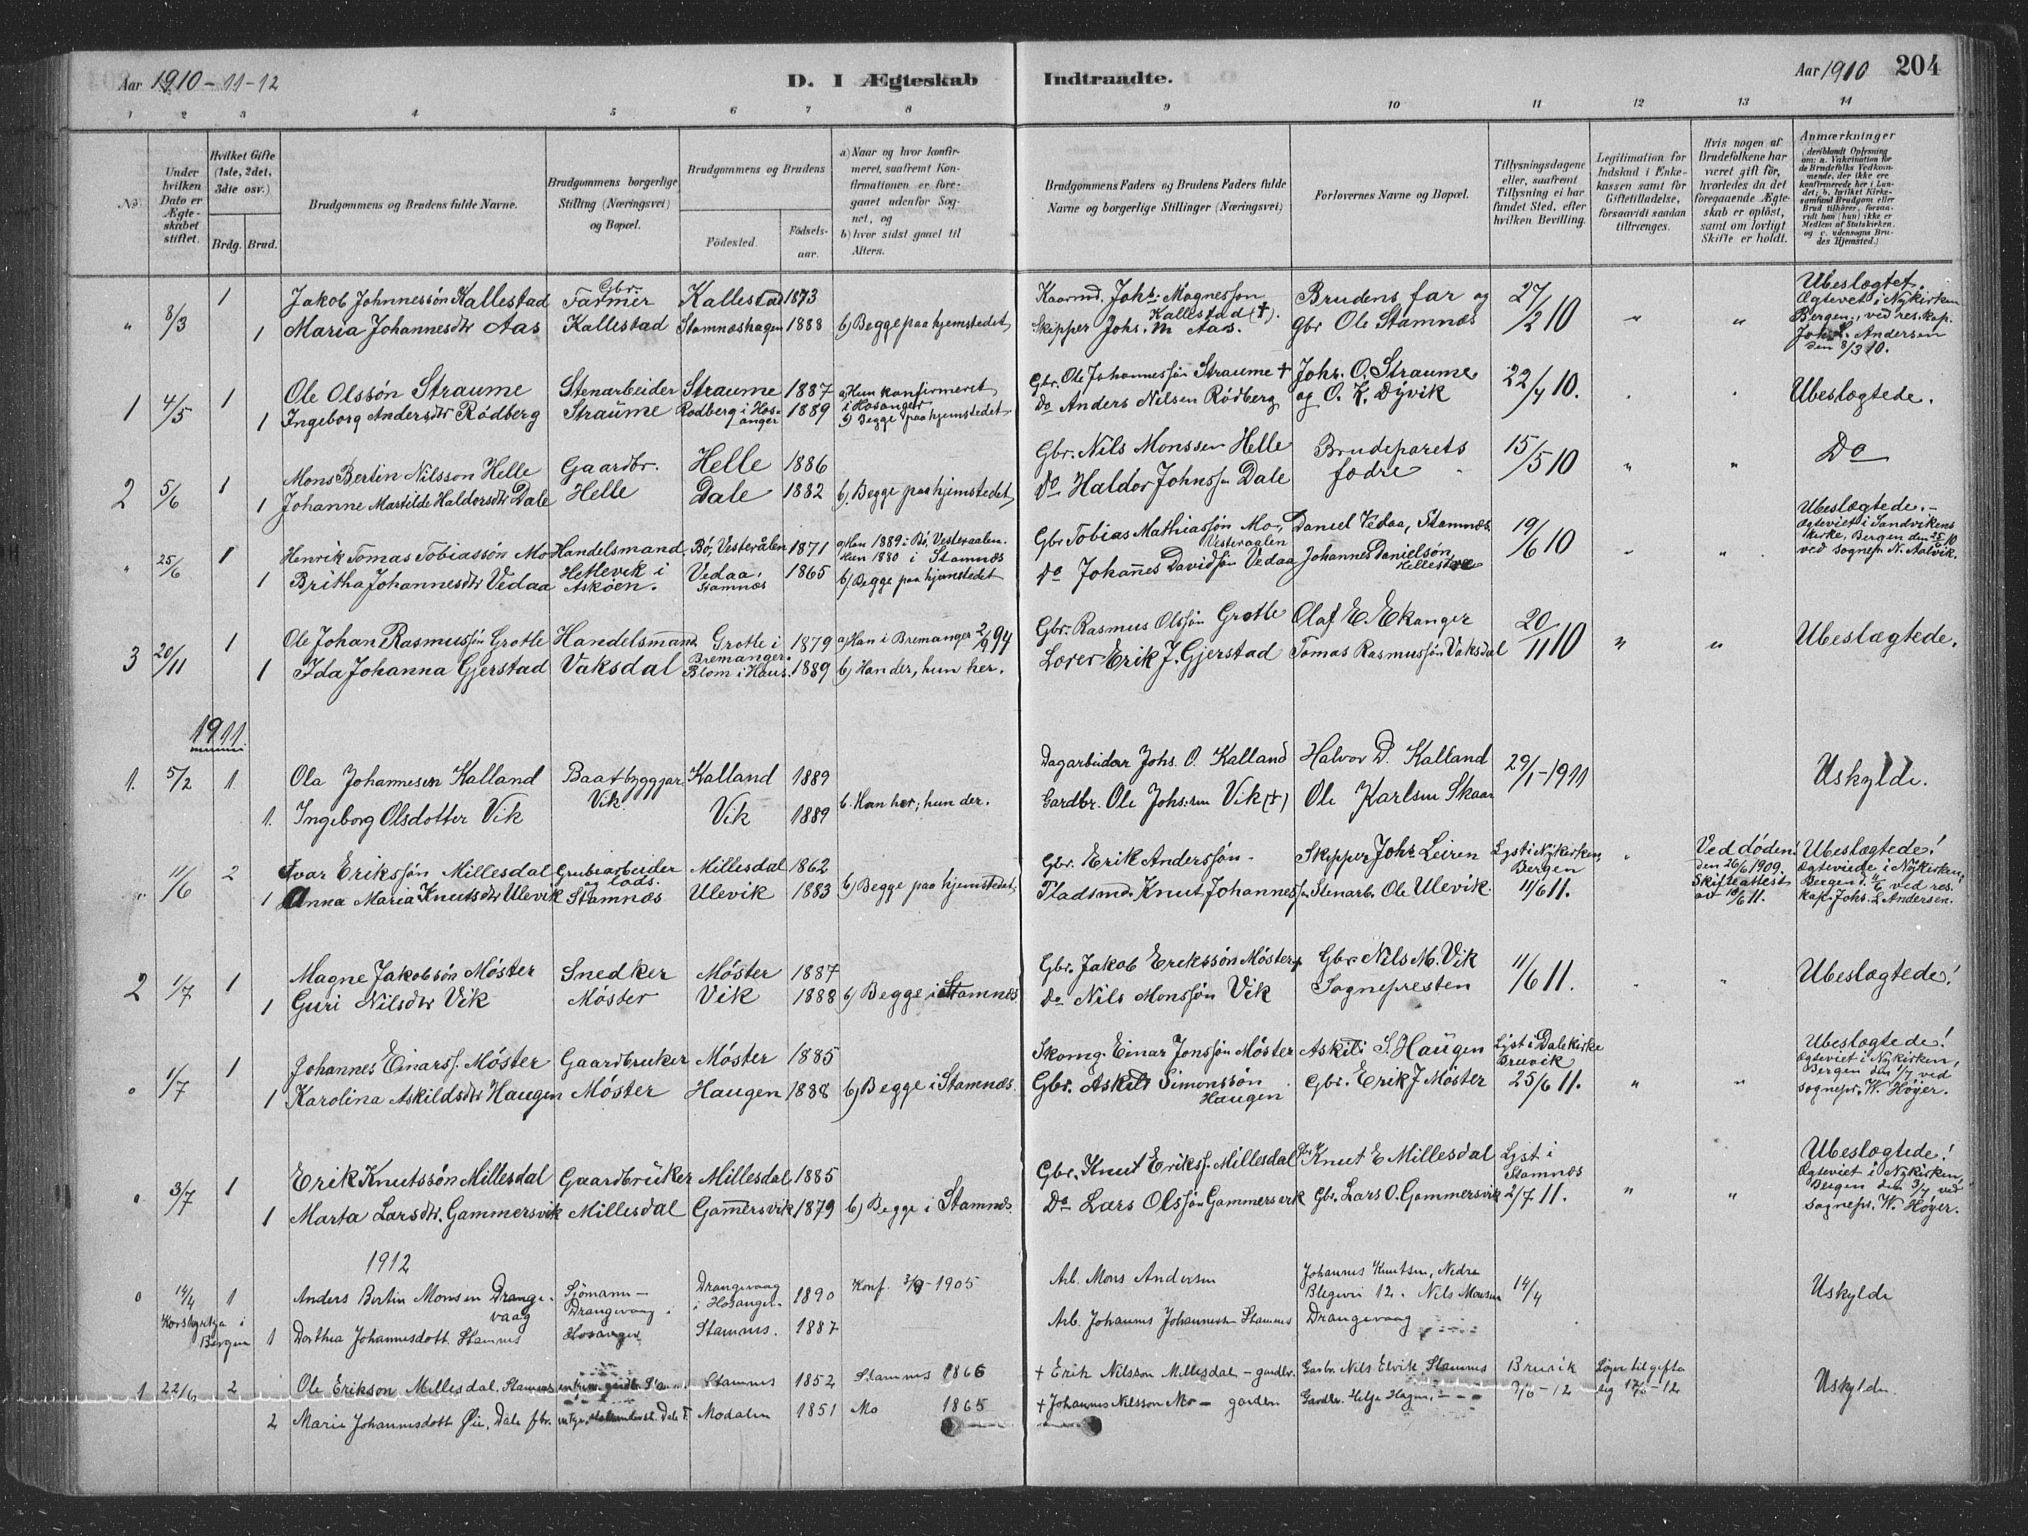 Aar 1910-11-12
D. I Ægteskab
Indtraadte.
Aar 1910
204
1 2 3 4 5 6 7 8 9 10 11 12 13 14
No.
Under hvilken Dato er Ægteskabet stiftet.
Hvilket Gifte (1ste, 2det, 3dte osv.)
Brdg. Brud.
Brudgommens og Brudens fulde Navne.
Brudgommens borgerlige Stilling (Næringsvei) og Bopæl.
Brudgommens og Brudens
Födested. Födsels-aar.
a) Naar og hvor konfirmeret, saafremt Konfirmationen er foregaaet udenfor Sognet, og
b) hvor sidst gaaet til Alters.
Brudgommens Faders og Brudens Faders fulde Navne og borgerlige Stillinger (Næringsvei)
Forlovernes Navne og Bopæl.
Tillysningsdagene eller, saafremt Tillysning ei har fundet Sted, efter hvilken Bevilling.
Legitimation for Indskud i Enkekassen samt for Giftetilladelse, forsaavidt saadan tiltrænges.
Hvis nogen af Brudefolkene har været gift før, hvorledes da det foregaaende Ægteskab er oplöst, samt om lovligt Skifte er holdt.
Anmærkninger
(deriblandt Oplysning om: a. Vakcination for de Brudefolks Vedkommende, der ikke ere konfirmerede her i Landet; b. hvilket Kirkesamfund Brudgom eller Brud tilhörer, forsaavidt han (hun) ikke er Medlem af Statskirken. og c. udensogns Brudes Hjemsted.)
" 8/3 1 Jakob Johnnessön Kallestad Gbr. Farmer Kallestad 1873 Kaarmd. Johs. Magnesson Kallestad (†). Brudens far og 27/2 10 " " Ubeslægtet.
1 Maria Johannesdtr Aas Kallestad Stamneshagen 1888 b) Begge paa hjemstedet Skipper Johs. M Aas. Gbr Ole Stamnæs Ægteviet i Nykirken Bergen, ved res. kap. Joh. L. Andersen den 8/3 10.
1 4/5 1 Ole Olssön Straume Stenarbeider Straume 1887 a) Hun konfirmeret i Hosanger Gbr. Ole Johannessön Straume † Johs. O. Straume 22/4 10. Ubeslægtede.
1 Ingeborg Andersdtr Rödberg Straume Rödberg i Hosanger 1889 b) Begge paa hjemstedet Do Anders Nilsen Rödberg og O. K. Dyvik
2 5/6 1 Mons Bertin Nilsson Helle Gaardbr. Helle 1886 Gbr. Nils Monssen Helle Brudeparets 15/5 10 " " Do
1 Johanne Martilde Haldorsdtr Dale Helle Dale 1882 b). Begge paa hjemstedet Do Haldor Johnss. Dale fædre
" 25/6 1 Henrik Tomas Tobiassön Mo Handelsmand Bö, Vesterålen 1871 a) Han 1889 i Bö, Vesteraalen. Hun 1880 i Stamnæs Gbr Tobias Mathiassön Mo, Vesteraalen Daniel Vedaa, Stamnæs. 19/6 10 " " Ubeslægtede.-
1 Britha Johannesdtr Vedaa Hetlevik i Askøen. Vedaa, Stamnæs 1865 b) Begge paa hjemstedet Do Johannes Davidsön Vedaa Johannes Danielsön Ægteviet i Sandvikens Kirke, Bergen den 25/6 10 ved sognepr. N. Aalvik.
3 20/11 1 Ole Johan Rasmussön Grotle Handelsmand Grotle i Bremanger. 1879 a) Han i Bremanger 2/9 94 Gbr. Rasmus Olssön Grotle Olaf E. Ekanger 20/11 10 " " Ubeslægtede.
1 Ida Johanna Gjerstad Vaksdal Blom i Haus. 1889 b) Han der, hun her. Lærer Erik J. Gjerstad Tomas Rasmussön Vaksdal
1911
1. 5/2 1 Ola Johannesen Kalland Baatbyggjar Kalland 1889 Dagarbeidar Johs. O. Kalland Halvor D. Kalland 29/1-1911 Uskylde.
1. Ingeborg Olsdotter Vik Vik. Vik 1889 b. Han her; hun der. Gardbr. Ole Johs.sen Vik (†) Ole Karlsen Skaar
" 11/6 2 Ivar Erikssön Millesdal Grubearbeider Millesdal 1862 Gbr. Erik Anderssön. Skipper Johs Leiren Lyst i Nykirken, Bergen " Ved döden den 26/6 1909. Skifteattest av 10/6 11. Ubeslægtede!
1 Anna Maria Knutsdtr Ulevik Stamnæs Ulevik 1883 b) Begge paa hjemstedet. Pladsmd. Knut Johanness. Stenarb. Ole Ulevik. 11/6 11. Ægteviede i Nykirken, Bergen. 11/6 ved res. kap. Johs. L Andersen.
2 1/7 1 Magne Jakobsön Möster Snedker Möster 1887 Gbr. Jakob Erikssön Möster Gbr. Nils M. Vik 11/6 11. Ubeslægtede!
1 Guri Nilsdtr Vik Möster Vik 1888 b) Begge i Stamnæs Do Nils Monssön Vik Sognepresten
" 1/7 1 Johannes Einarss. Möster Gaardbruker Möster 1885 Skomg. Einar Jonssön Möster Askild S. Haugen Lyst i Dale kirke Bruvik " " Ubeslægtede!
1 Karolina Askildsdtr Haugen Möster Haugen 1888 b) Begge i Stamnæs. Gbr. Askild Simonssön Haugen Gbr. Erik J Möster 25/6 11. Ægteviet i Nykirken, Bergen den 1/7 ved sognepr. W. Höyer.
" 3/7 1 Erik Knutssön Millesdal Gaardbrüker Millesdal 1885 Gbr. Knut Erikss. Millesdal Knut E Millesdal Lyst i Stamnæs " " Ubeslægtede!
1 Marta Larsdtr. Gammersvik Millesdal Gamersvik 1879 b) Begge i Stamnæs. Do Lars Olssön Gammersvik Gbr. Lars O. Gammersvik 2/7 11. Ægteviet i Nykirken, Bergen den 3/7 ved sognepr. W. Höyer.
1912
14/4 Korskyrkja i Bergen 1 Anders Bertin Monsen Drangevaag Sjömann- Drangevaag i Hosanger Drangevaag i Hosanger. 1890 Konf. 3/9-1905 Arb. Mons Andersen Johannes Knutsen, Nedre Blegevei 12. Nils Monsen Drangevaag 14/4 Uskylde
1 Dorthea Johannesdott. Stamnes Stamnes. 1887 Arb. Johannes Johannessen Stamnes
1 22/6 2 Ole Erikson Millesdal, Stamnes Stamnes 1852 Stamnes 1866 † Erik Nilsson Millesdal - gardbr. Gardbr. Nils Elvik Stamnes Bruvik 9/6-12 Löyve til gifta Uskylde.
2 Maria Johannesdott Øie, Dale Modalen 1851 Mo 1865 † Johannes Nilsson Mo - Gardbr. Helje